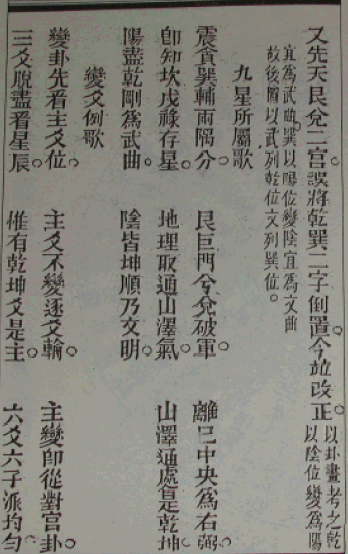 又先天艮兌二宮誤將乾巽二字倒置今竝改正以卦畫考之乾
以陰位變爲陽
宜爲武曲巽以陽位變陰宜爲文曲
故後圖以武列乾位文列巽位。
九星所屬歌
震貪巽輔兩隅分 艮巨門兮兌破軍 離巳中央爲右弼
卽知坎戊祿存星 地理取通山澤氣 山澤通處是乾坤
陽盡乾剛爲武曲 陰皆坤順乃文明
變爻倒歌
變卦先看主爻位 主爻不變逐爻輪 主變卽從對宮卦
三爻脫盡看星辰 惟有乾坤爻是主 六爻六子派均勻